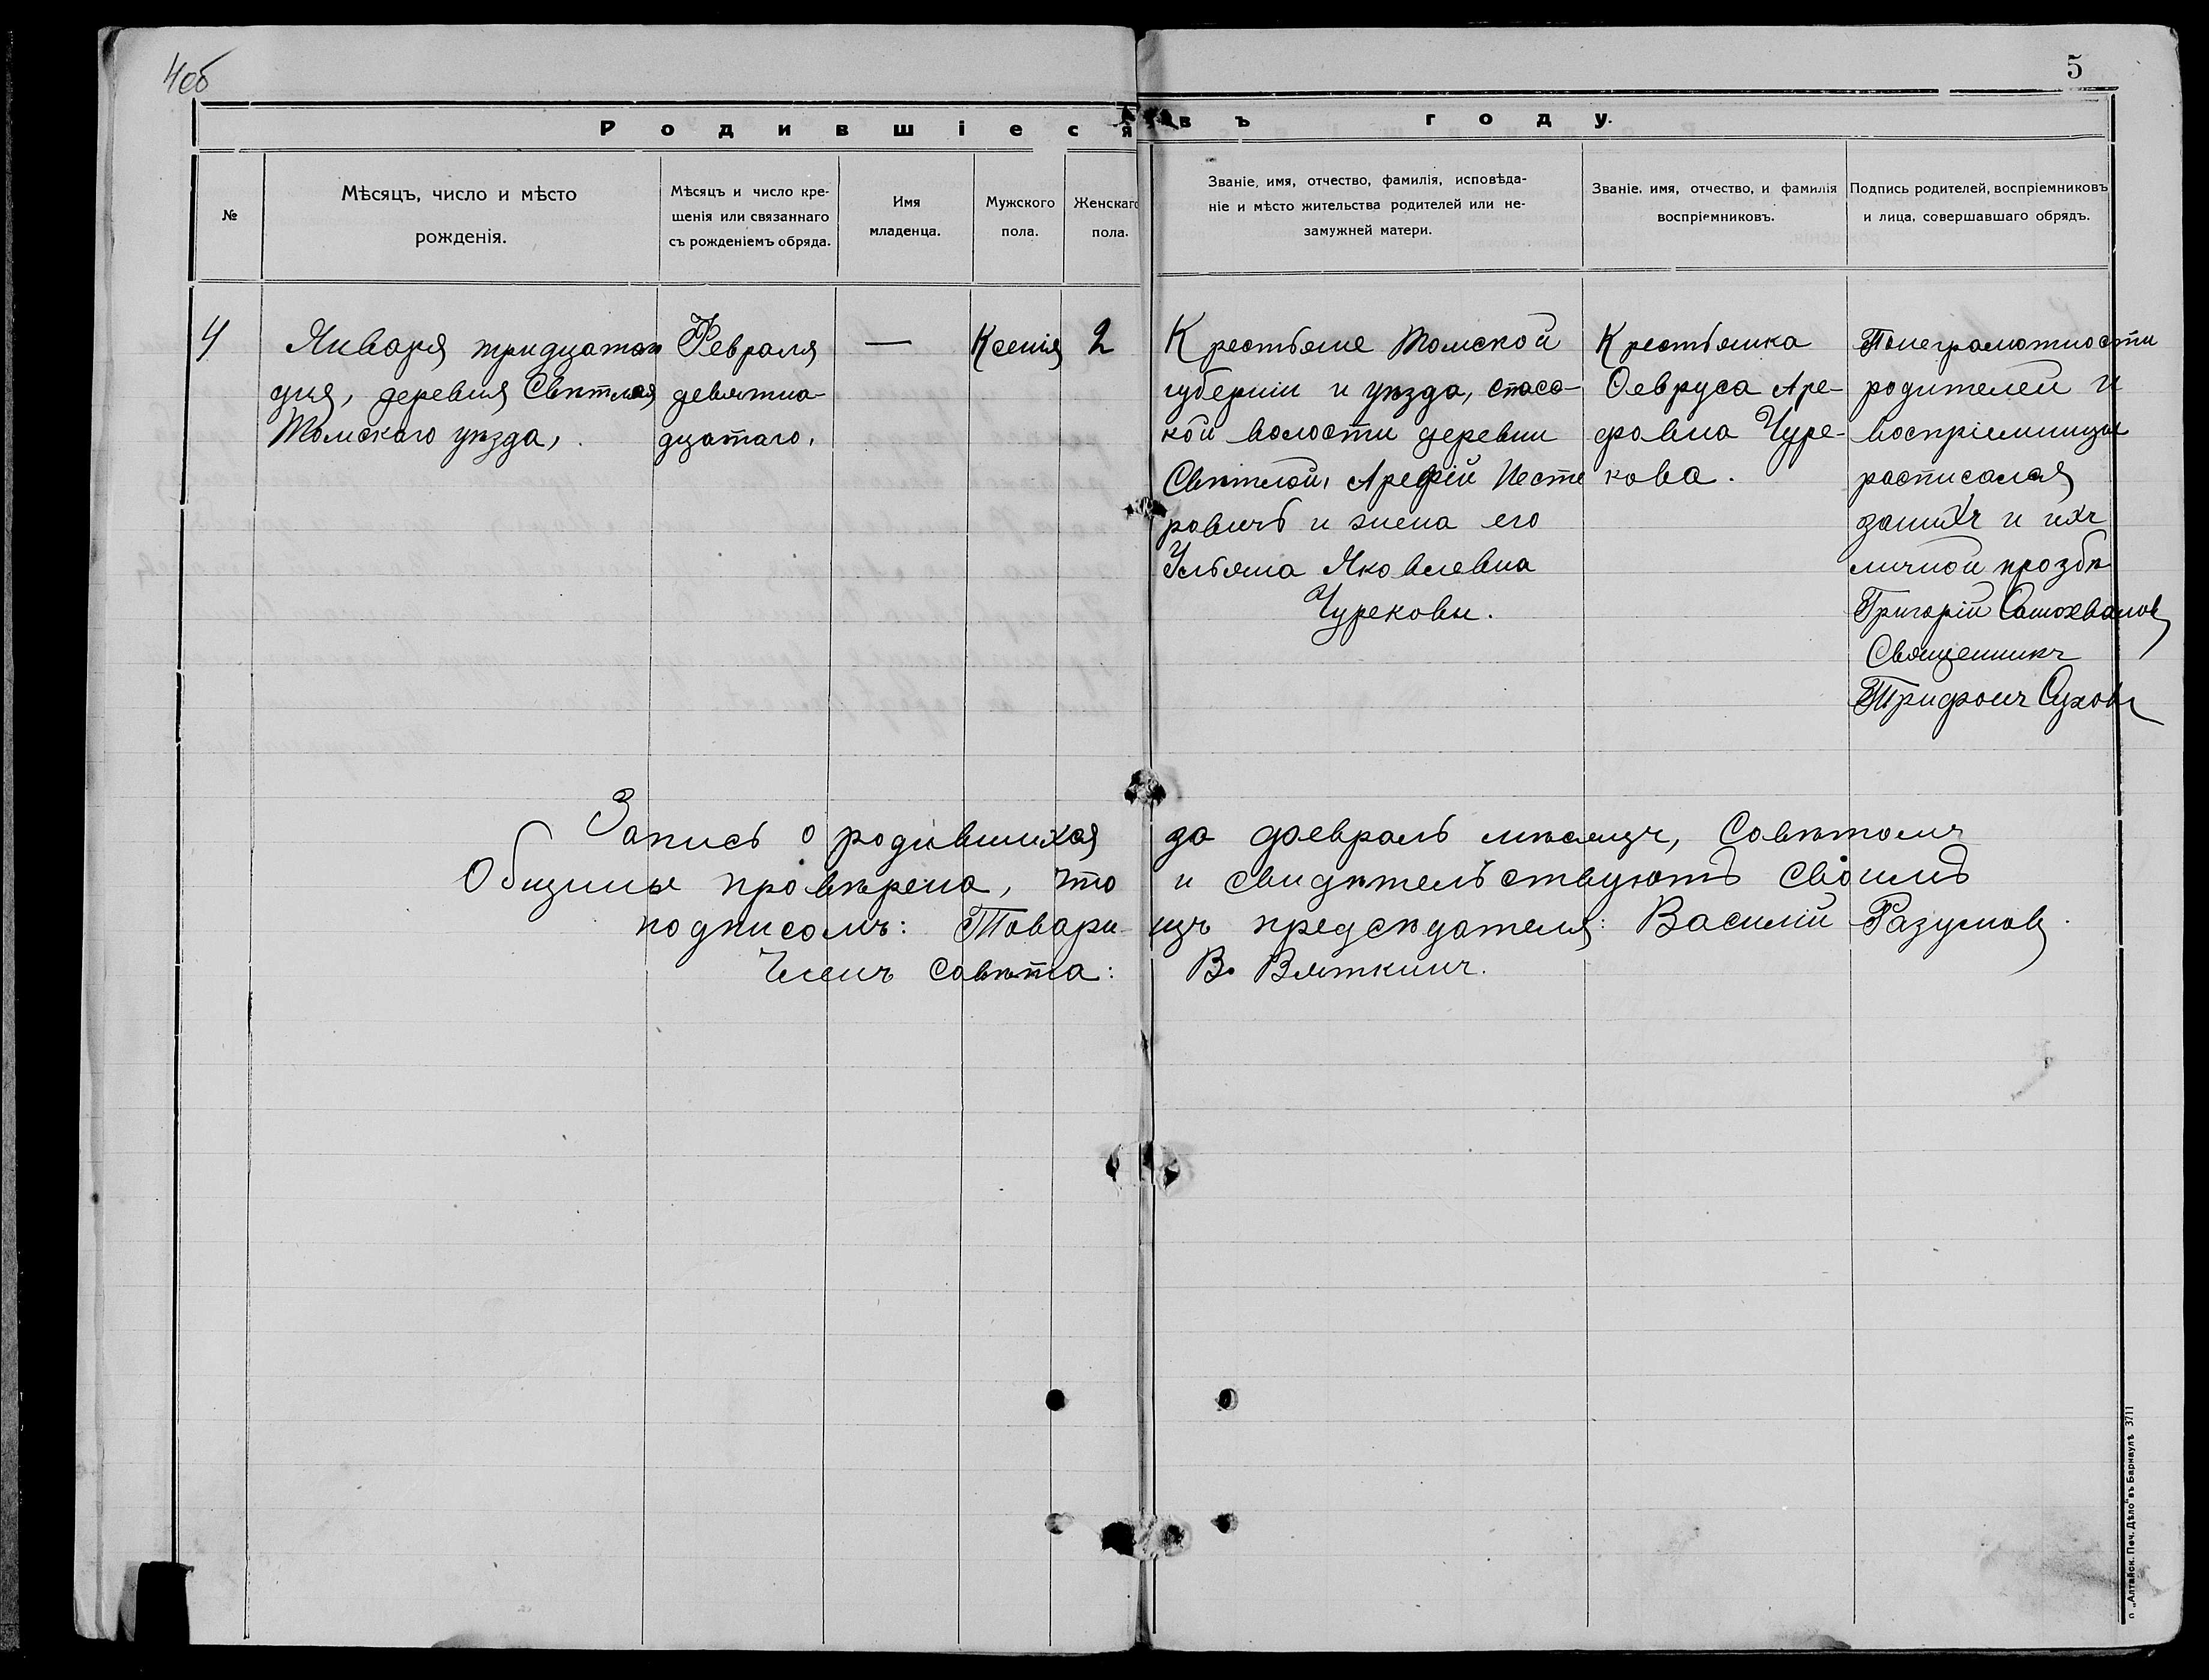 4об
5
Родившіеся въ году.
№
Мѣсяцъ, число и мѣсто
рожденія.
Мѣсяцъ и число кре-
щенія или связаннаго
съ рожденіемъ обряда.
Имя
младенца.
Мужского
пола.
Женскаго
пола.
Званіе, имя, отчество, фамилія, исповѣда-
ніе и мѣсто жительства родителей или не-
замужней матери.
Званіе, имя, отчество, и фамилія
воспріемниковъ.
Подпись родителей, воспріемниковъ
и лица, совершавшаго обрядъ.
4
Января тридцатаго
дня, деревня Свѣтлая
Томскаго уѣзда,
Февраля
девятна-
дцатаго.
—
Ксенія
2
Крестьяне Томской
губерніи и уѣзда, спасс-
кой волости деревни
Свѣтлой, Арефій Несте
ровичъ и жена его
Ульяна Яковлевна
Чурековы.
Крестьянка
Февруса Аре-
фовна Чуре-
кова.
Понеграмотности
родителей и
воспріемницы
расписался
занихъ и ихъ
личной прозбѣ
Григорій Самохвалов
Священникъ
Трифонъ Суховъ
Запись о родившихся за февраль мѣсяцъ, Совѣтомъ
Общины провѣрена, что и свидѣтельствуютъ своимъ
подписомъ: Товарищъ предсѣдателя: Василій Разумов
Членъ совѣта: В. Вяткинъ.
п. „Алтайск. Печ. Дѣло" въ Барнаулѣ 3711